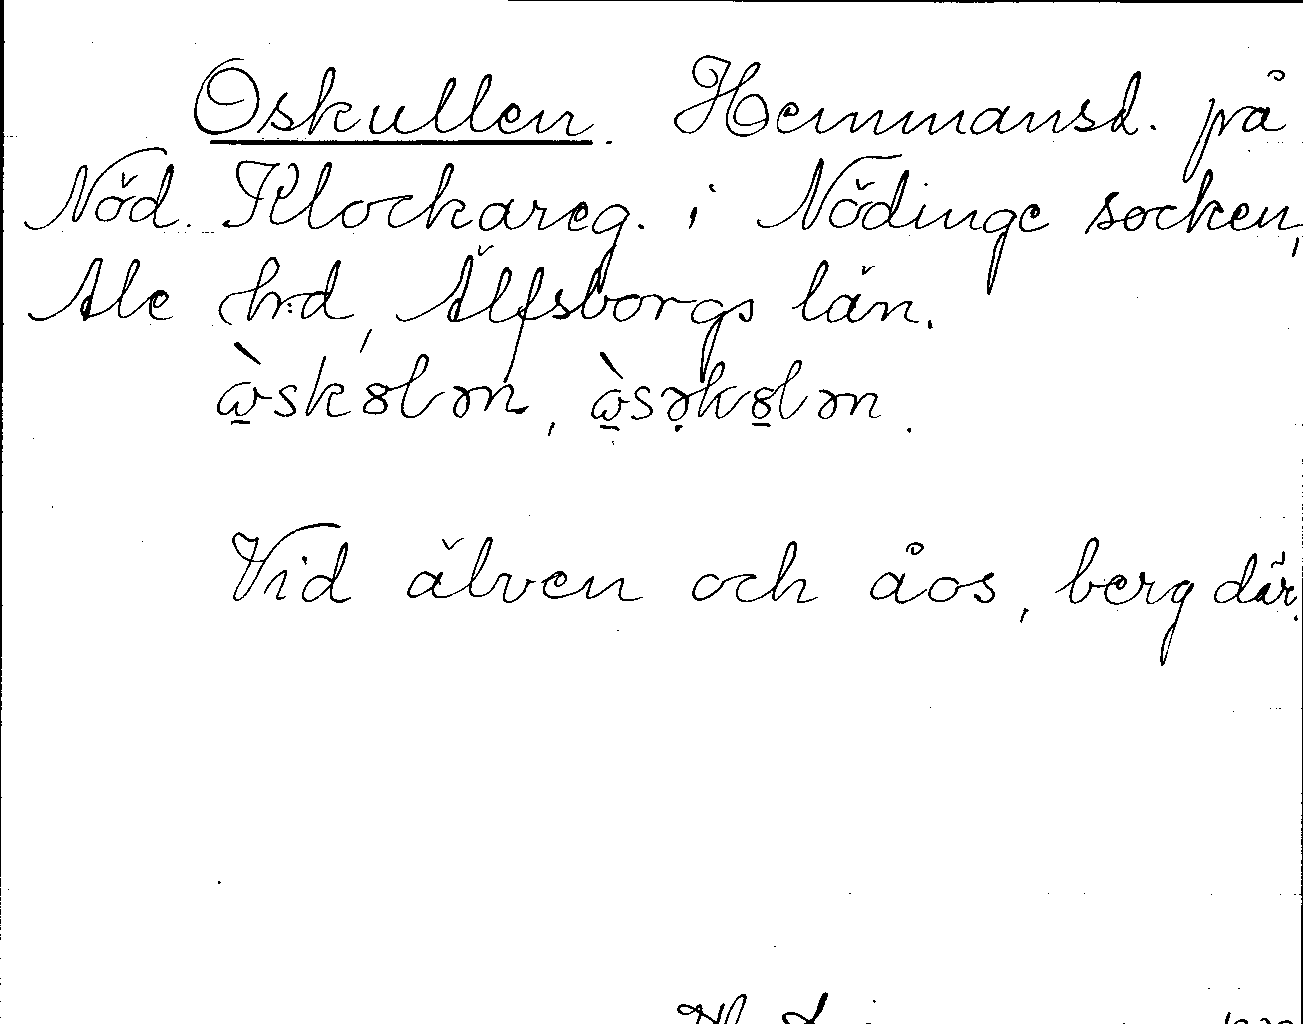 Oskullen. Hemmansd. på
Nöd. Klockareg. i Nödinge socken,
Ale hd, Älfsborgs län.
Vid älven och åos, berg där.